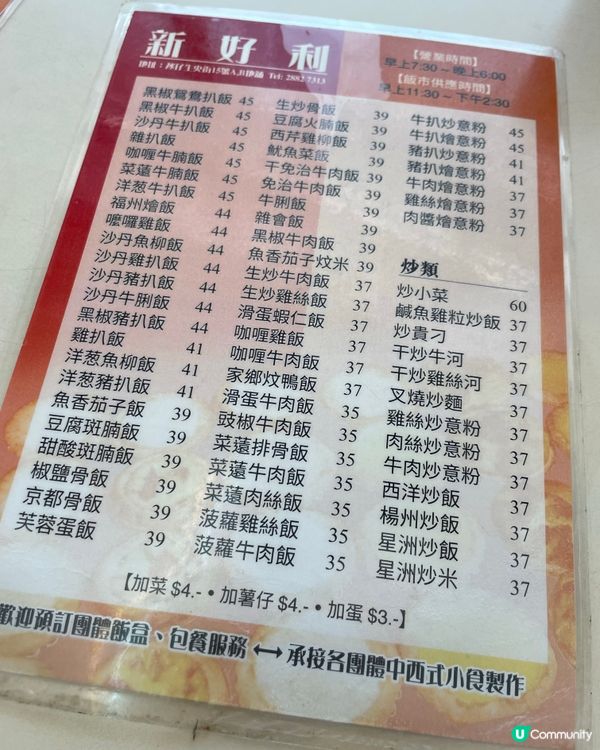 新好利
地址：灣仔生央街15號A.B地舖 Tel: 2882 7313
【營業時間】
早上7:30 ~ 晚上6:00
【飯市供應時間】
早上11:30 ~ 下午2:30
黑椒鴛鴦扒飯 45
黑椒牛扒飯 45
沙丹牛扒飯 45
雜扒飯 45
咖喱牛腩飯 45
菜薳牛腩飯 45
洋葱牛扒飯 45
福州燴飯 44
嚤囉雞飯 44
沙丹魚柳飯 44
沙丹雞扒飯 44
沙丹豬扒飯 44
沙丹牛脷飯 44
黑椒豬扒飯 44
雞扒飯 41
洋葱魚柳飯 41
洋葱豬扒飯 41
魚香茄子飯 39
豆腐斑腩飯 39
甜酸斑腩飯 39
椒鹽骨飯 39
京都骨飯 39
芙蓉蛋飯 39
生炒骨飯 39
豆腐火腩飯 39
西芹雞柳飯 39
魷魚菜飯 39
干免治牛肉飯 39
免治牛肉飯 39
牛脷飯 39
雜會飯 39
黑椒牛肉飯 39
魚香茄子炆米 39
生炒牛肉飯 37
生炒雞絲飯 37
滑蛋蝦仁飯 37
咖喱雞飯 37
咖喱牛肉飯 37
家鄉炆鴨飯 37
滑蛋牛肉飯 35
豉椒牛肉飯 35
菜薳排骨飯 35
菜薳牛肉飯 35
菜薳肉絲飯 35
菠蘿雞絲飯 35
菠蘿牛肉飯 35
牛扒炒意粉 45
牛扒燴意粉 45
豬扒炒意粉 41
豬扒燴意粉 41
牛肉燴意粉 37
雞絲燴意粉 37
肉醬燴意粉 37
炒類
炒小菜 60
鹹魚雞粒炒飯 37
炒貴刁 37
干炒牛河 37
干炒雞絲河 37
叉燒炒麵 37
雞絲炒意粉 37
肉絲炒意粉 37
牛肉炒意粉 37
西洋炒飯 37
楊州炒飯 37
星洲炒飯 37
星洲炒米 37
【加菜 $4.- • 加薯仔 $4.- • 加蛋 $3.-】
歡迎預訂團體飯盒、包餐服務 ↔ 承接各團體中西式小食製作
U Community